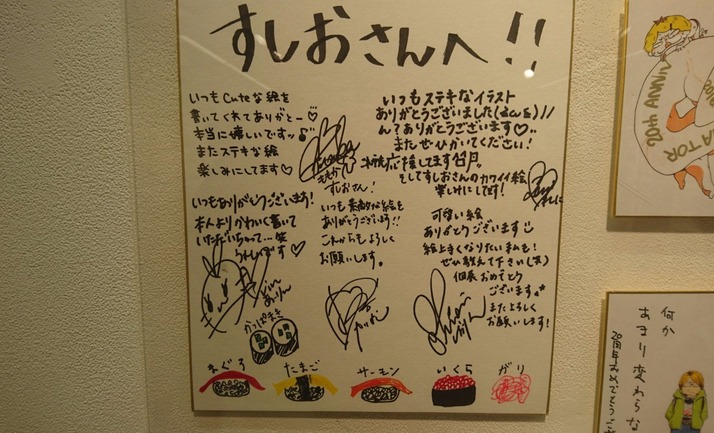 すしおさんへ!!
いつもCuteな絵を
書いてくれてありがとー♡
本当に嬉しいですッ♪
またステキな絵
楽しみにしてます♡
いつもステキなイラスト
ありがとうございました
ん?ありがとうございます♡
またぜひかいてください!
応援してます
そしてすしおさんのカワイイ絵
楽しみにしてます!
いつもありがとうございます!
本人よりかわいく書いて
いただいちゃって…笑
うれしいです♡
すしおさん!
いつも素敵な絵を
ありがとうございます!!
これからもよろしく
お願いします。
可愛い絵
ありがとうございます
絵上手くなりたいマんも!
ぜひ教えて下さい(笑)
個展おめでとう
ございます
またよろしく
お願いします!
かっぱまき
まぐろ
たまご
サーモン
いくら
がり
何か
あまり変わらな
20周年おめでとうご